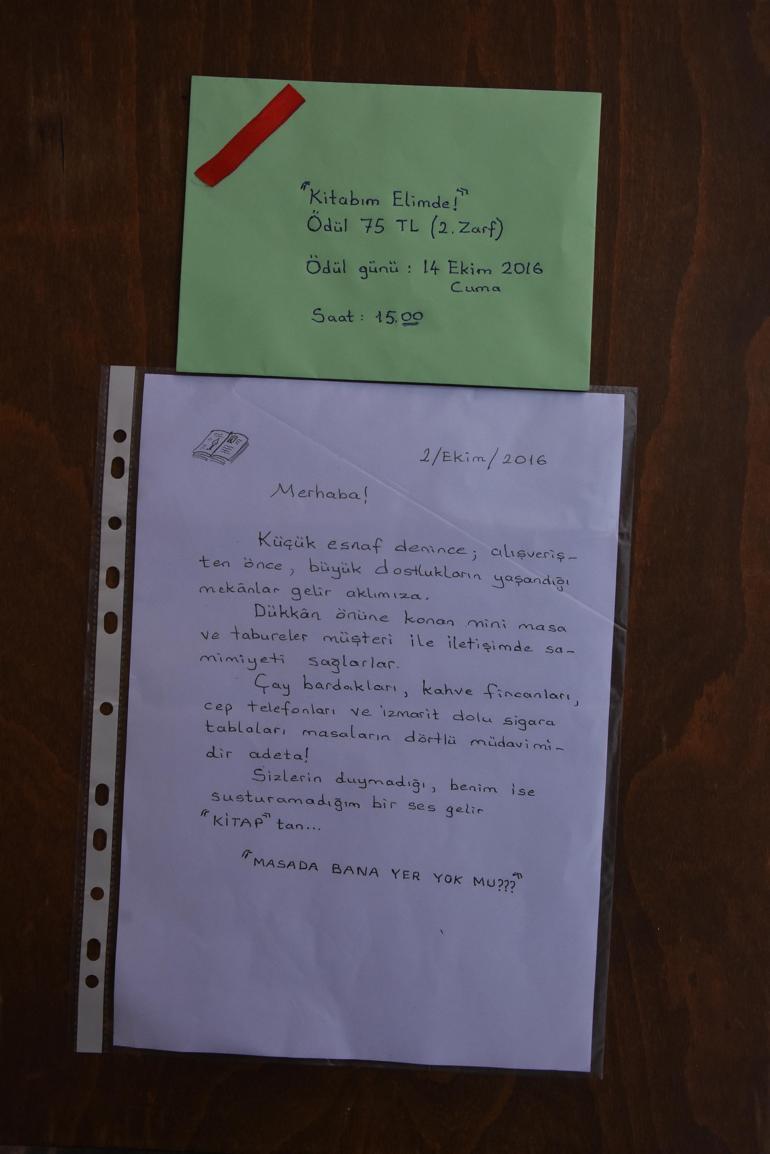 "Kitabım Elimde!"
Ödül 75 TL (2. Zarf)
Ödül günü : 14 Ekim 2016
Cuma
Saat : 15.00
2/Ekim/2016
Merhaba!
Küçük esnaf denince; alışveriş-
ten önce, büyük dostlukların yaşandığı
mekânlar gelir aklımıza.
Dükkân önüne konan mini masa
ve tabureler müşteri ile iletişimde sa-
mimiyeti sağlarlar.
Çay bardakları, kahve fincanları,
cep telefonları ve izmarit dolu sigara
tablaları masaların dörtlü müdavimi-
dir adeta!
Sizlerin duymadığı, benim ise
susturamadığım bir ses gelir
"KİTAP" tan...
"MASADA BANA YER YOK MU???"